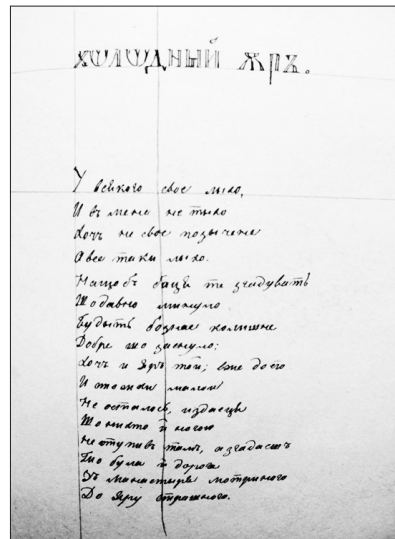 ХОЛОДНЫЙ ЯРЪ.
У всякого свое лыхо,
И въ мене не тыхо
Хочъ не свое позычене
А все таки лыхо.
Нащобъ бацця те згадувать
Що давно минуло
Будыть бознае колышне
Добре що заснуло;
Хочъ и Яръ той; вже до его
И стежки малои
Не осталось, издаеця
Що нихто й ногою
Не ступивъ тамъ, а згадаешъ
То була и дорога
Зъ манастыря мотриного
До Яру страшного.